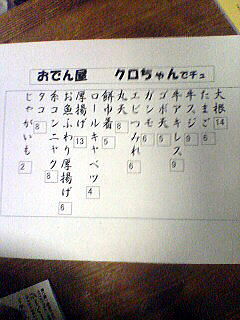 おでん屋 クロちゃんでチュ
大根 14
たまご 6
牛スジ 9
牛アキレス 9
天 5
エビつみれ 6
丸天 8
餅巾着 5
ロールキャベツ 4
厚揚げ 13
お魚ふわり厚揚げ 6
糸コンニャク 8
タコ 8
じゃがいも 2